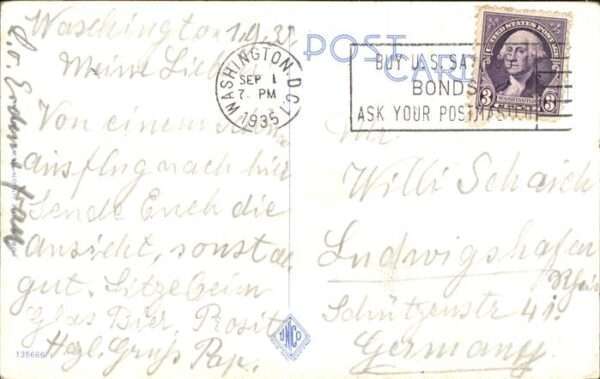 Waschington 1.9.35
Meine Lieb
Von einem
ausflug nach hier
sende Euch die
ansicht, sonst
gut. Sitze beim
glas Bier, Prosit
Hzl. Gruß Pap.
POST CARD
WASHINGTON, D.C. 1
SEP 1
7 PM
1935
BUY U.S. SA
BONDS
ASK YOUR POSTM
UNITED STATES POSTAGE
3 3
Willi Schaich
Ludwigshafen
Rhein
Schützenstr 41
Germany